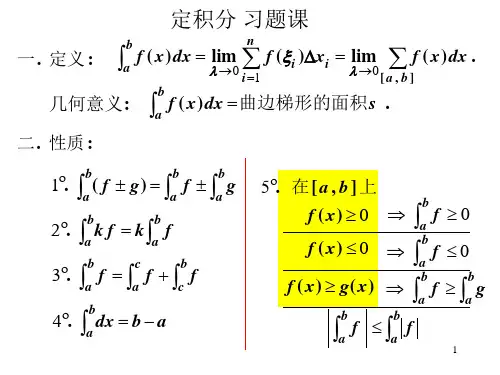 定积分 习题课
一. 定义: ∫_a^b f(x)dx = lim_{λ→0} ∑_{i=1}^n f(ξ_i)Δx_i = lim_{λ→0} ∑_{[a,b]} f(x)dx .
几何意义: ∫_a^b f(x)dx = 曲边梯形的面积s .
二. 性质:
1°. ∫_a^b (f ± g) = ∫_a^b f ± ∫_a^b g
2°. ∫_a^b k f = k ∫_a^b f
3°. ∫_a^b f = ∫_a^c f + ∫_c^b f
4°. ∫_a^b dx = b − a
5°. 在[a,b]上
f(x) ≥ 0 ⇒ ∫_a^b f ≥ 0
f(x) ≤ 0 ⇒ ∫_a^b f ≤ 0
f(x) ≥ g(x) ⇒ ∫_a^b f ≥ ∫_a^b g
|∫_a^b f| ≤ ∫_a^b |f|
1